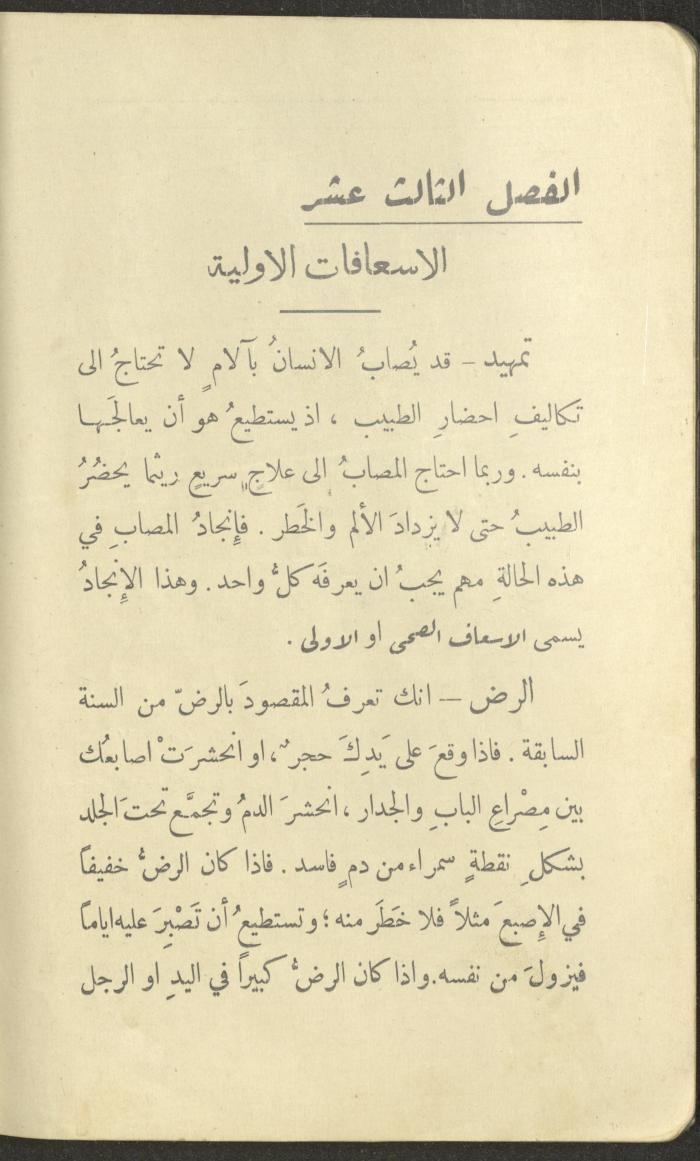 الفصل الثالث عشر
الاسعافات الاولية
تمهيد – قد يُصابُ الانسانُ بآلامٍ لا تحتاجُ الى
تكاليفِ احضارِ الطبيب ، اذ يستطيعُ هو أن يعالجَها
بنفسه . وربما احتاج المصابُ الى علاجٍ سريعٍ ريثما يحضُرُ
الطبيبُ حتى لا يزدادَ الألم والخَطر . فإِنجادُ المصابِ في
هذه الحالةِ مهم يجبُ ان يعرفَه كلُّ واحد . وهذا الإِنجادُ
يسمى الاسعاف الصحى او الاولى .
الرض – انك تعرفُ المقصودَ بالرضّ من السنة
السابقة . فاذا وقعَ على يَدِكَ حجرٌ ، او انحشرَتْ اصابعُك
بين مِصْراعِ البابِ والجدار ، انحشرَ الدمُ وتجمَّع تحتَ الجلد
بشكلِ نقطةٍ سمراء من دمٍ فاسد . فاذا كان الرضُّ خفيفاً
في الإِصبعَ مثلاً فلا خَطَر منه ؛ وتستطيعُ أن تَصْبِرَ عليه اياماً
فيزولَ من نفسه . واذا كان الرضُّ كبيراً في اليدِ او الرجل